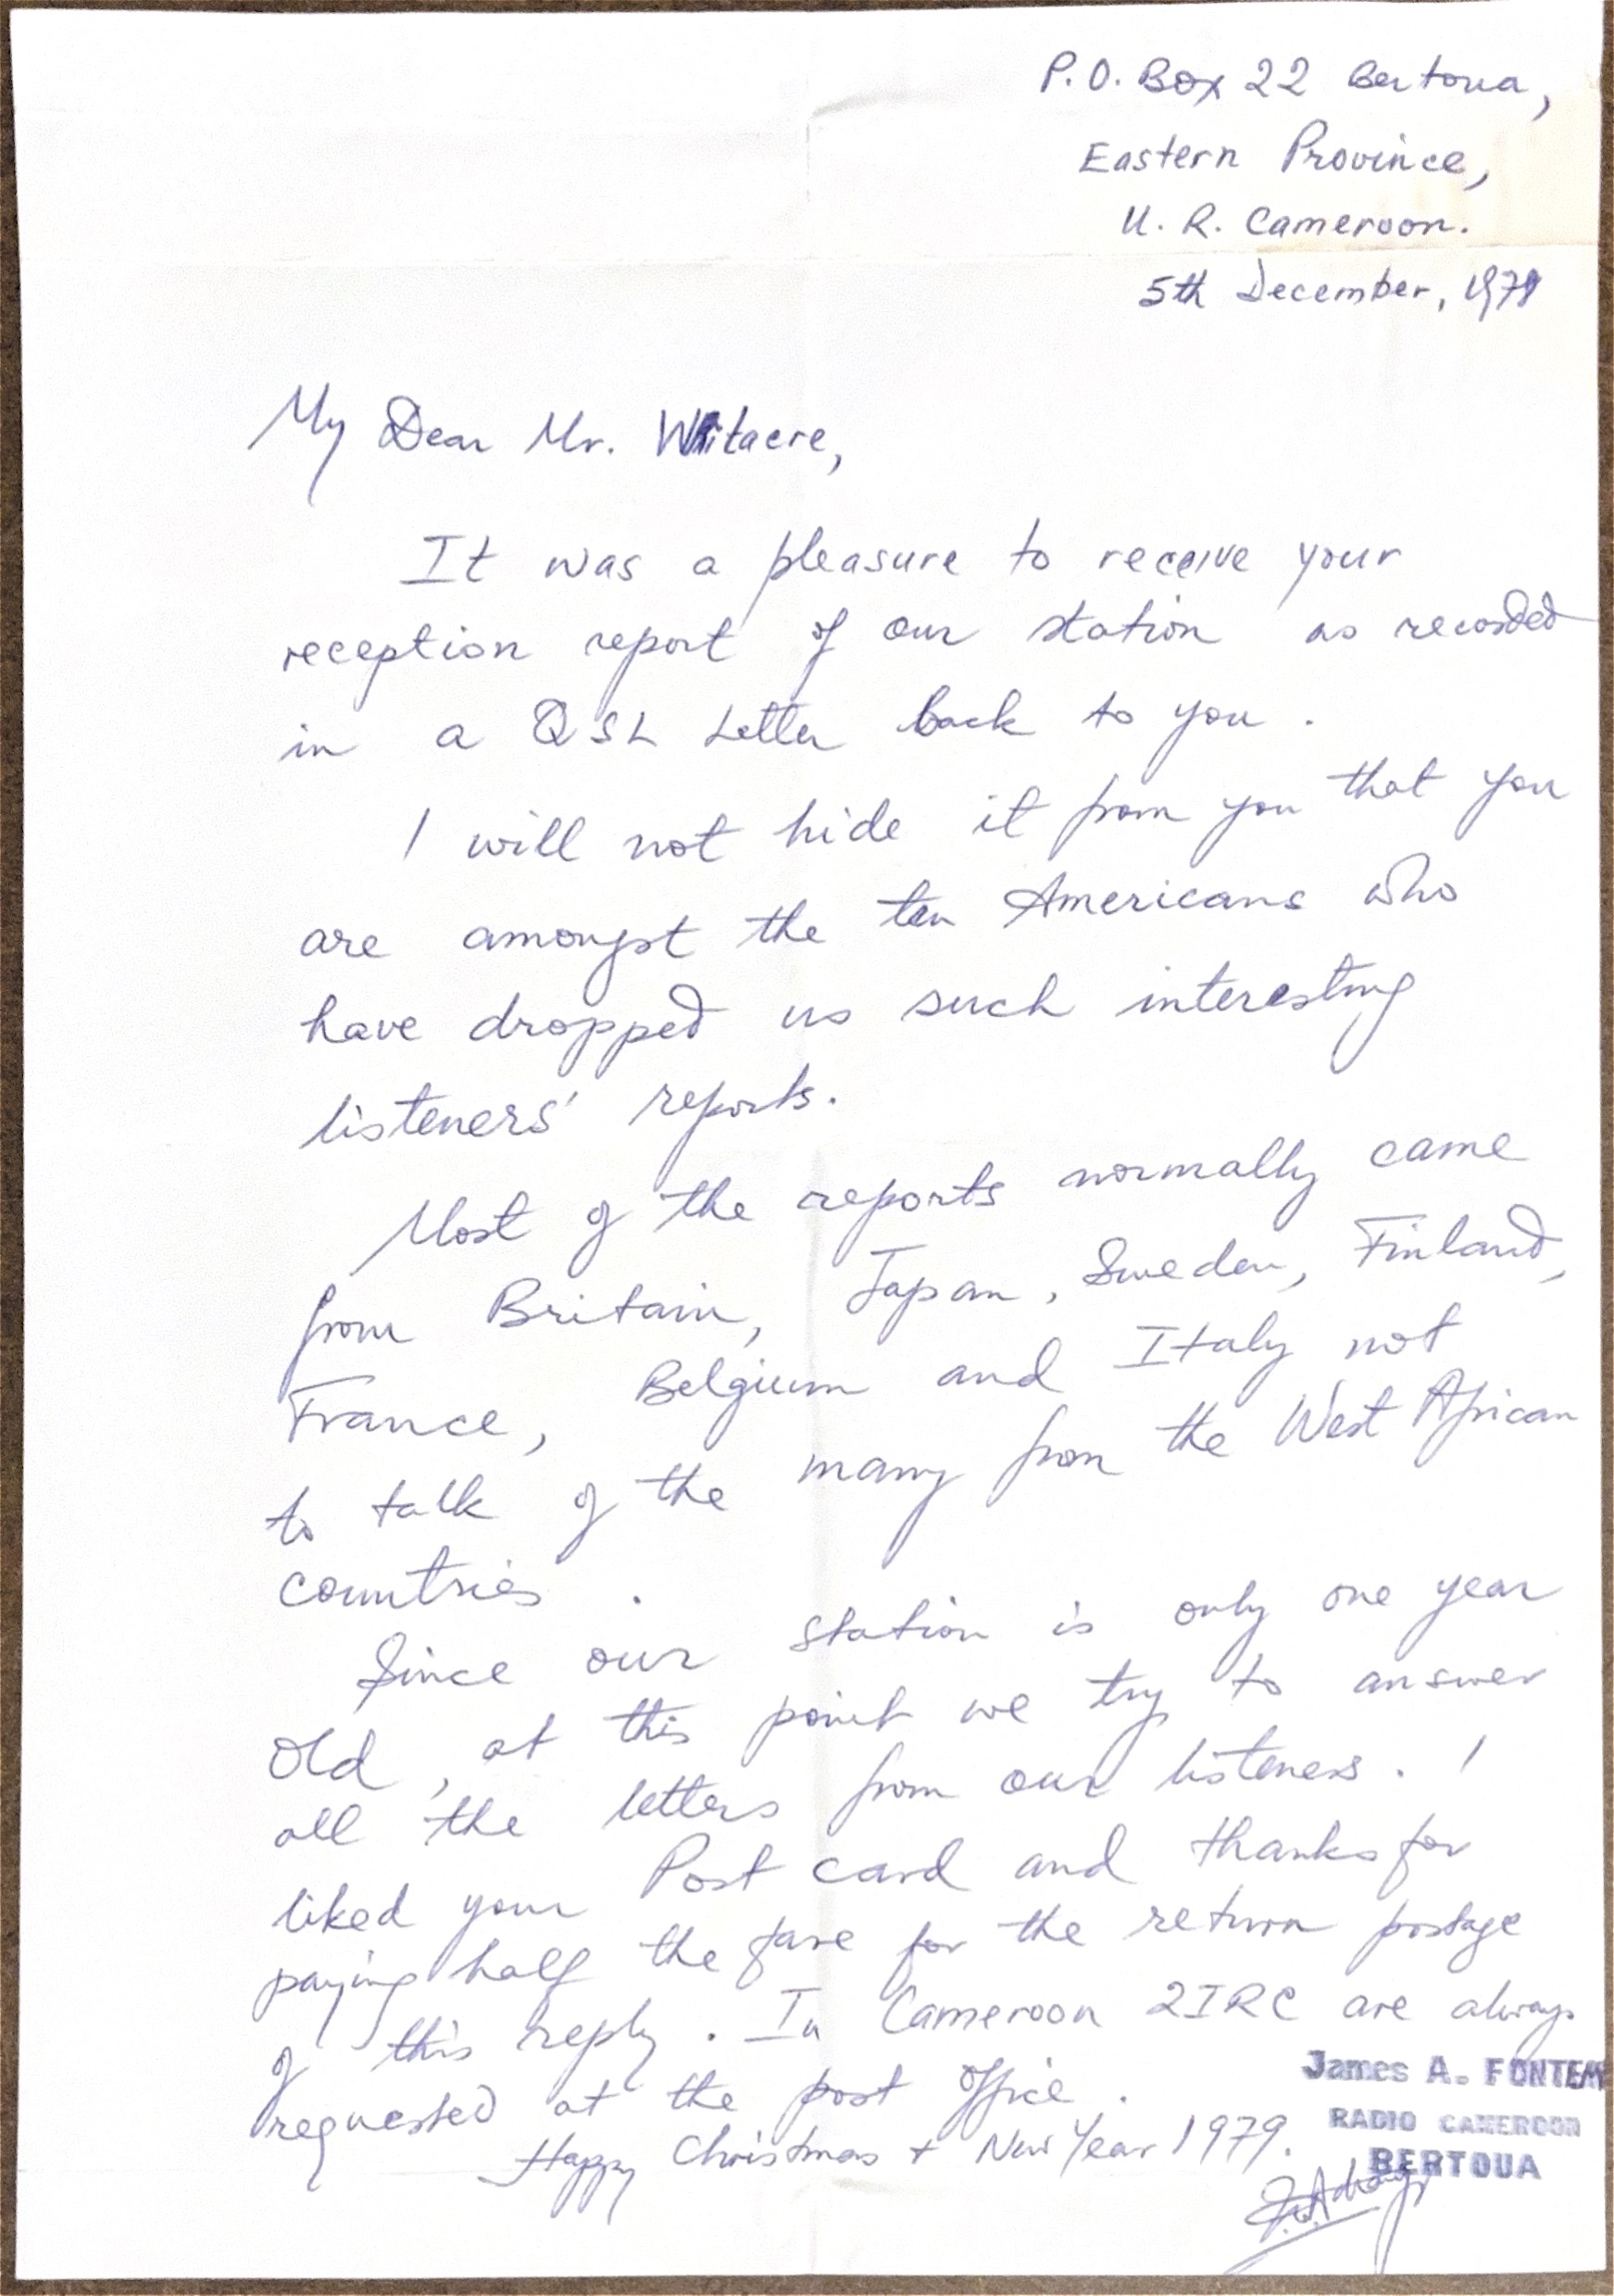 P.O. Box 22 Bertoua,
Eastern Province,
U. R. Cameroon.
5th December, 1979
My Dear Mr. Whitacre,
It was a pleasure to receive your
reception report of our station as recorded
in a QSL Letter back to you.
I will not hide it from you that you
are amongst the ten Americans who
have dropped us such interesting
listeners' reports.
Most of the reports normally came
from Britain, Japan, Sweden, Finland,
France, Belgium and Italy not
to talk of the many from the West African
countries.
Since our station is only one year
old, at this point we try to answer
all the letters from our listeners. I
liked your Post card and thanks for
paying half the fare for the return postage
of this reply. In Cameroon 2IRC are always
requested at the post office.
Happy Christmas + New Year 1979.
James A. FONTEM
RADIO CAMEROON
BERTOUA